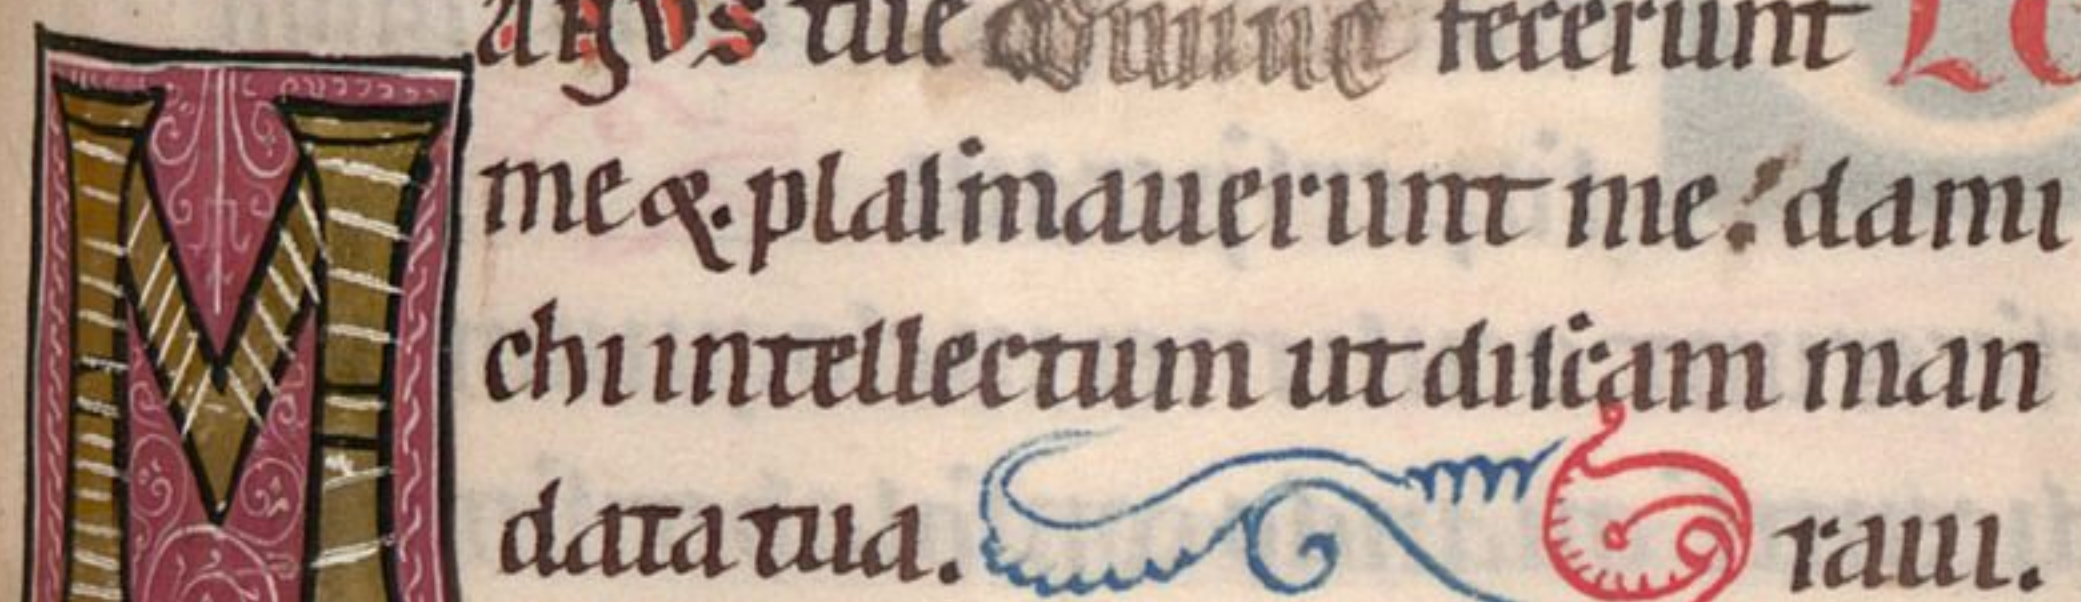 Manus tue domine fecerunt
me &. plasmauerunt me: da mi
chi intellectum ut discam man
data tua. Graui.